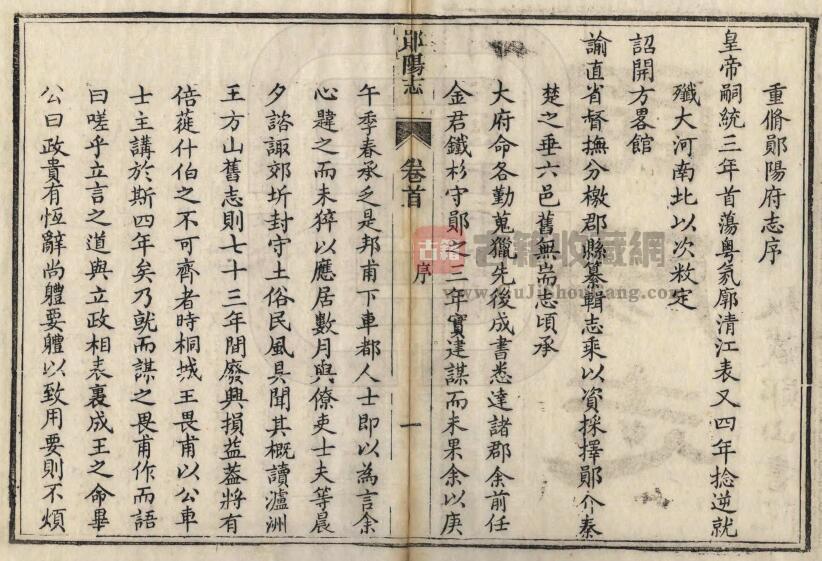 重脩鄖陽府志序
皇帝嗣統三年首蕩粤氛廓清江表又四年捻逆就
殱大河南北以次敉定
詔開方畧館
諭直省督撫分檄郡縣纂輯志乘以資採擇鄖介秦
楚之垂六邑舊無耑志頃承
大府命各勤蒐獵先後成書悉達諸郡余前任
金君鐵杉守鄖之三年實建謀而未果余以庚
鄖陽志
卷首
序
一
午季春承乏是邦甫下車都人士即以為言余
心韙之而未猝以應居數月與僚吏士夫等晨
夕諮諏郊圻封守土俗民風具聞其概讀瀘洲
王方山舊志則七十三年間廢興損益蓋將有
倍蓰什伯之不可齊者時桐城王畏甫以公車
士主講於斯四年矣乃就而謀之畏甫作而語
曰嗟乎立言之道與立政相表裏成王之命畢
公曰政貴有恆辭尚體要體以致用要則不煩
古籍
古籍收藏網
www.GuJiShouCang.com